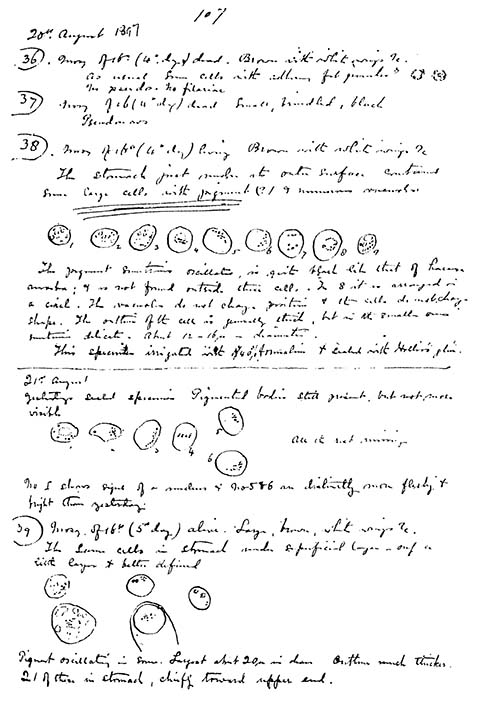 107
20th August 1897
36. Mosq. of 16th (4th day) dead. Brown with white wings &c.
As usual some cells with
No pseudos. No filariae
37 Mosq of 16 (4th day) dead small, brindled, black
38. Mosq. of 16th (4th day) living Brown with white wings &c
The stomach just under its outer surface contained
some large cells with pigment (?) & numerous vacuoles
1 2 3 4 5 6 7 8 9
The pigment sometimes oscillates, is quite black like that of haem
amoebae; & is not found outside these cells. In 8 it is arranged in
a circle. The vacuoles do not change position & the cells do not change
shape. The outline of the cell is generally thick, but in the smaller ones
sometimes delicate. About 12–16µ in diameter.
This specimen irrigated with 40% formalin & sealed with
21st August
Yesterday's sealed specimen Pigmented bodies still present, but not more
visible
3 4 5
6
All not moving
No 5 shows signs of a nucleus & No 5 & 6 are distinctly more fleshy &
bright than yesterday.
39 Mosq. of 16th (5th day) alive. Large, brown, white wings &c.
The same cells in stomach under superficial layer – only a
little larger & better defined
Pigment oscillating in some. Largest about 20µ in diam Outline much thicker.
21 of these in stomach, chiefly toward upper end.